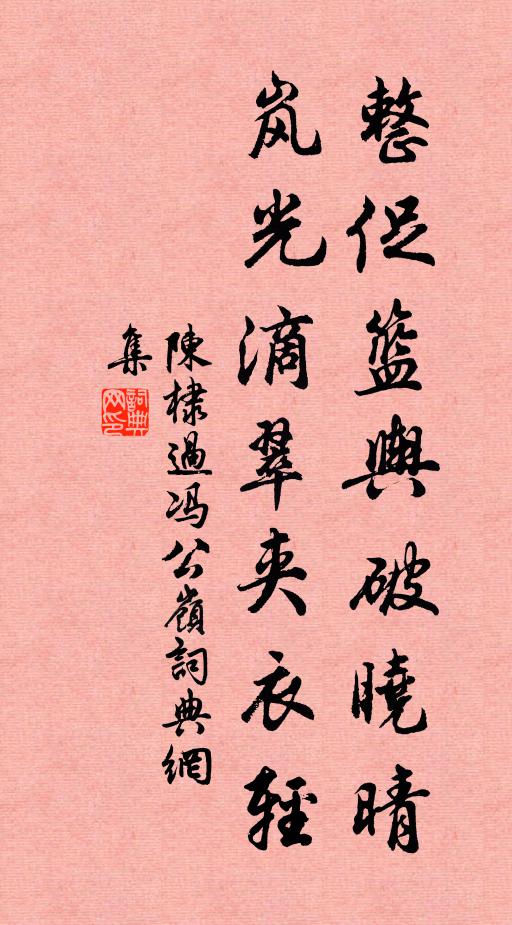 整促籃輿破曉晴
岚光滴翠夹衣輕
陳棣過冯公嶺詞典網
集
詞典
网印